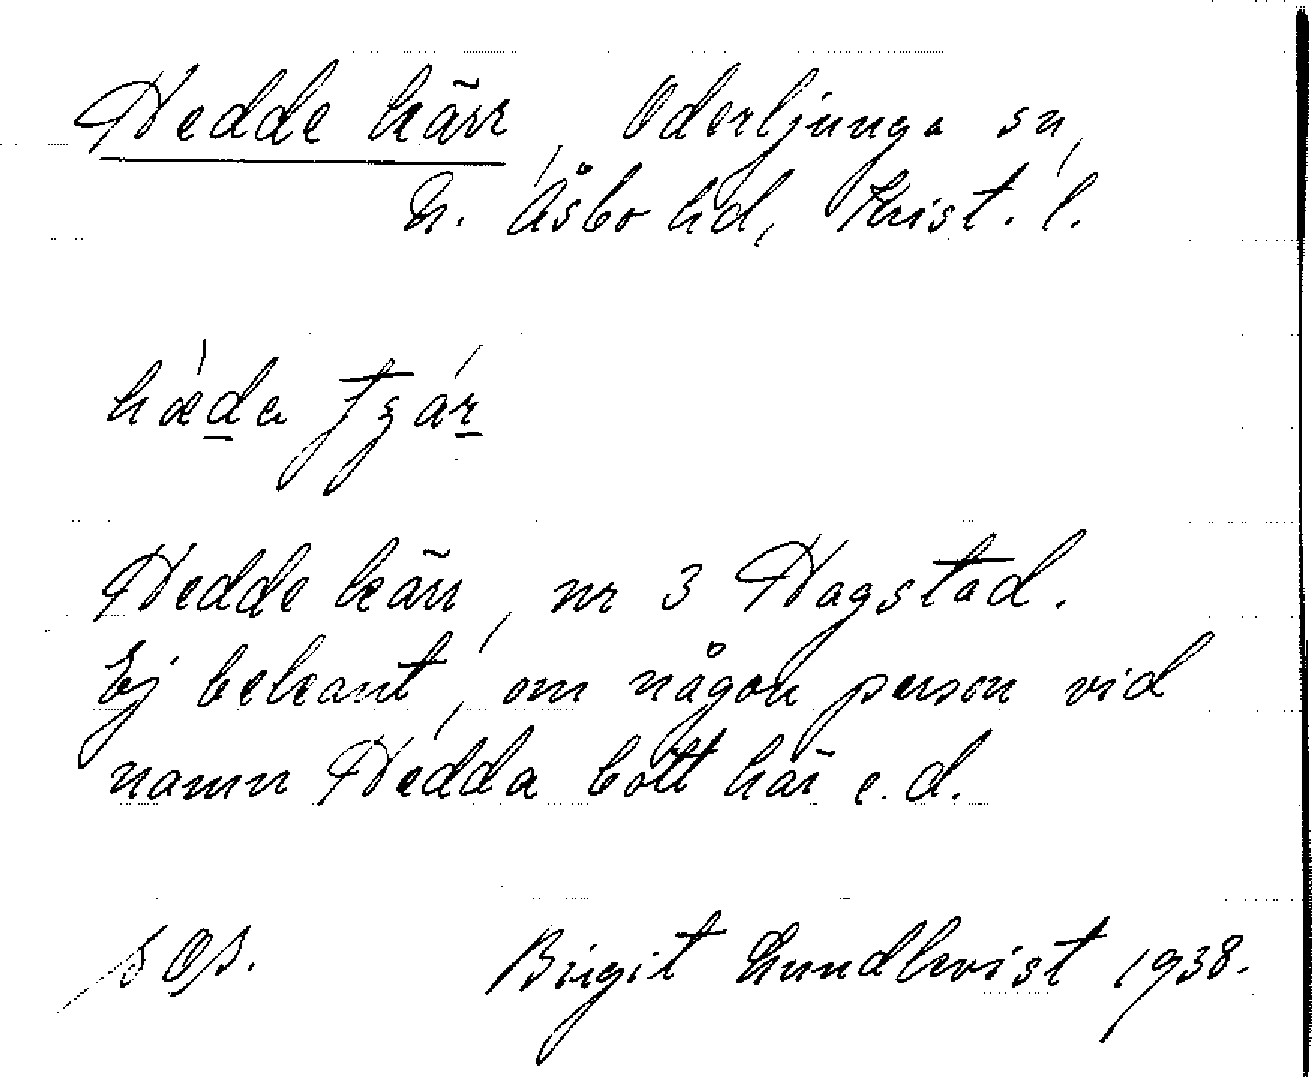 Hedde kärr, Oderljunga sn,
N. Åsbo hd, Krist. l.
Hedde kärr, nr 3 Hagstad.
Ej bekant, om någon person vid
namn Hedda bott här e. d.
Birgit Lundkvist 1938.